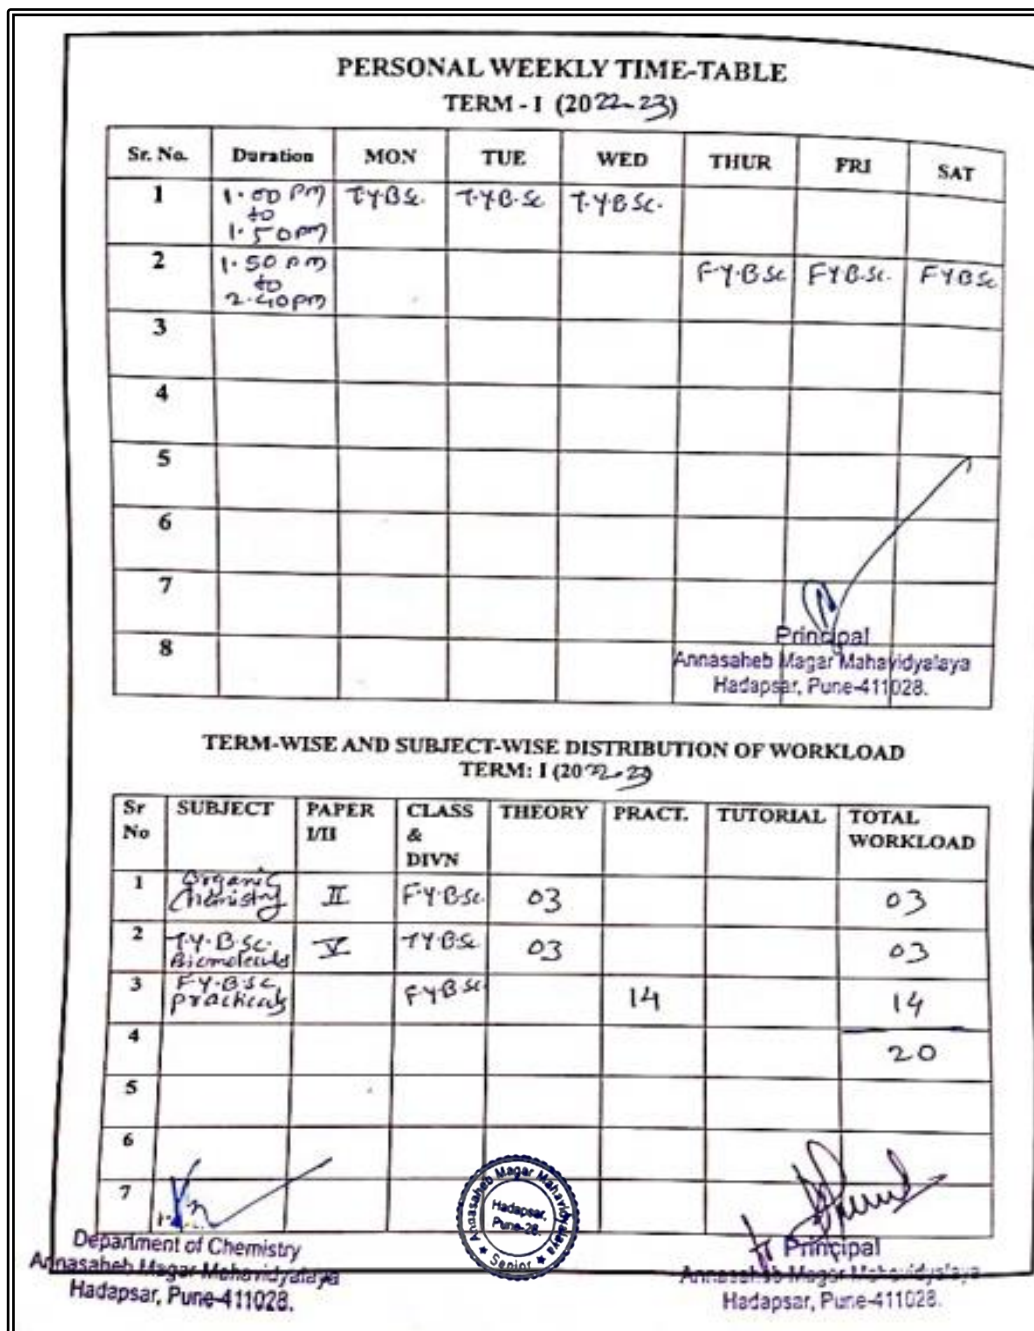 PERSONAL WEEKLY TIME-TABLE
TERM - I (2022-23)
Sr. No. Duration MON TUE WED THUR FRI SAT
1 1.00 PM to 1.50 PM T.Y.BSc. T.Y.B.Sc T.Y.BSc.
2 1.50 PM to 2.40 PM F.Y.BSc F.Y.B.Sc. F.Y.BSc
3
4
5
6
7
8
Principal
Annasaheb Magar Mahavidyalaya
Hadapsar, Pune-411028.
TERM-WISE AND SUBJECT-WISE DISTRIBUTION OF WORKLOAD
TERM: I (2022-23)
Sr No SUBJECT PAPER I/II CLASS & DIVN THEORY PRACT. TUTORIAL TOTAL WORKLOAD
1 Organic Chemistry II F.Y.B.Sc. 03 03
2 T.Y.B.Sc. Biomolecules V T.Y.BSc 03 03
3 F.Y.B.Sc, practicals F.Y.BSc 14 14
4 20
5
6
7
Annasaheb Magar Mahavidyalaya
Hadapsar, Pune-28.
★ Senior ★
Department of Chemistry
Annasaheb Magar Mahavidyalaya
Hadapsar, Pune-411028.
Principal
Annasaheb Magar Mahavidyalaya
Hadapsar, Pune-411028.